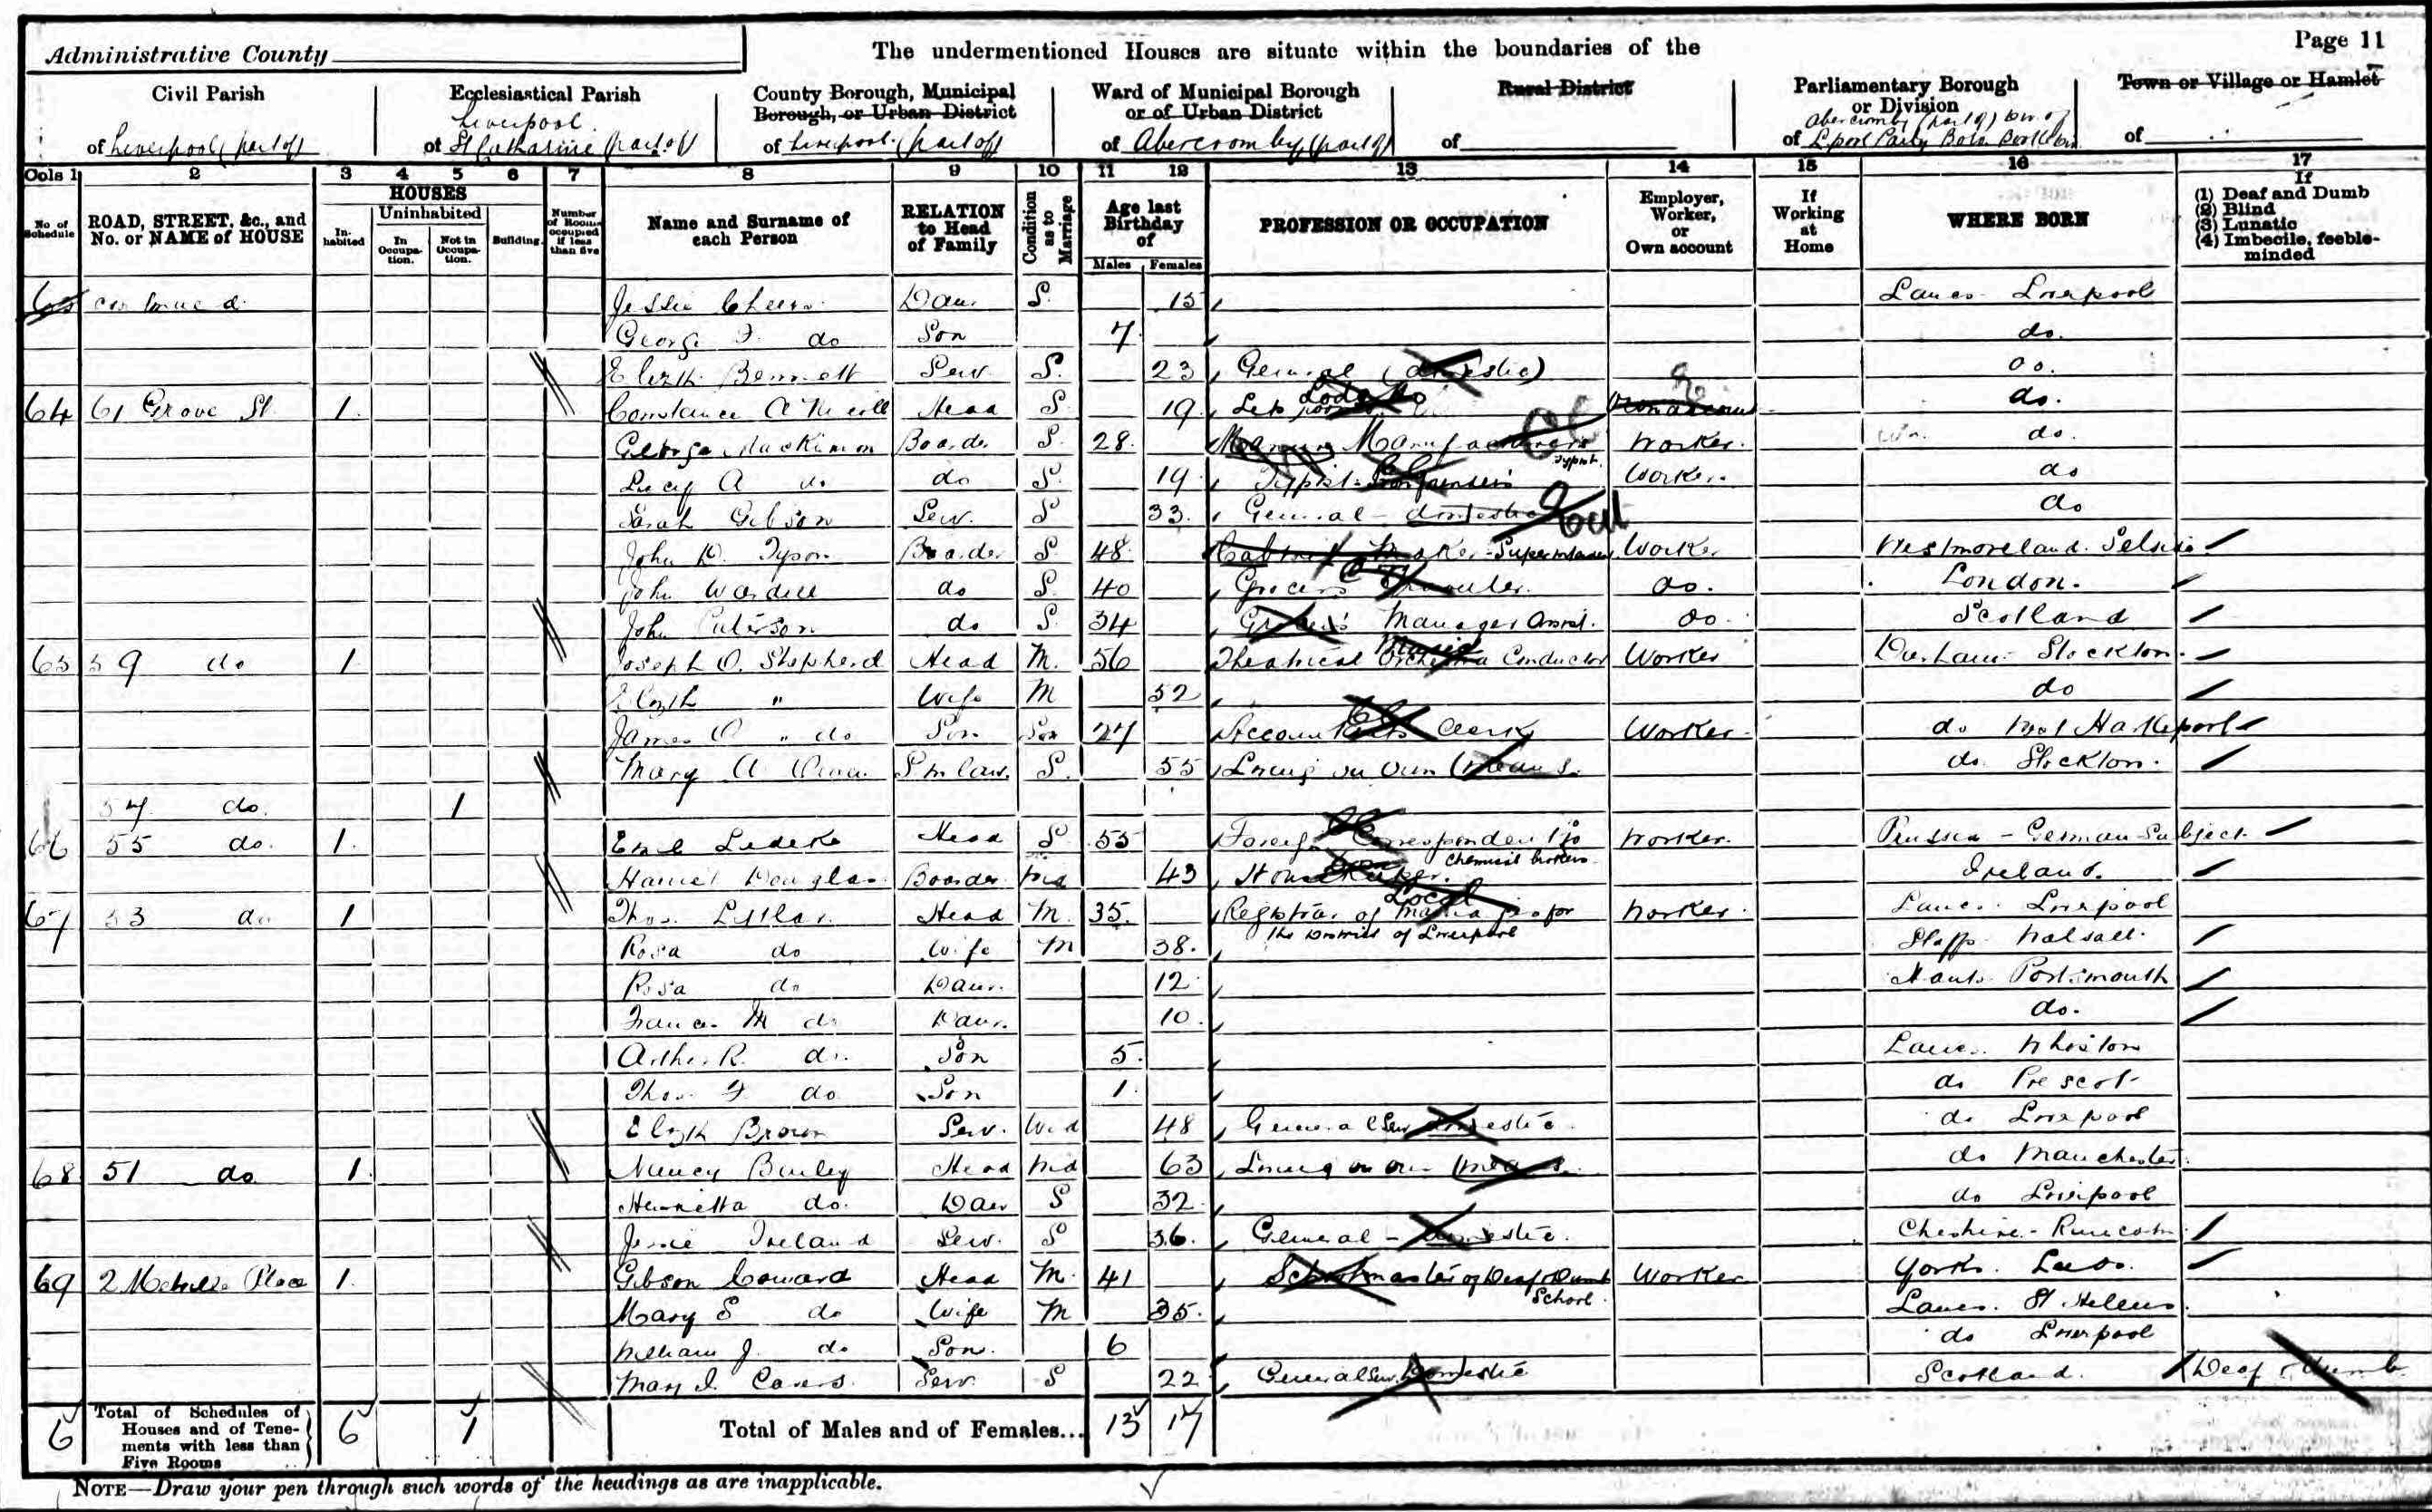 Page 11
Administrative County
The undermentioned Houses are situate within the boundaries of the
Civil Parish
of Liverpool (part of)
Ecclesiastical Parish
Liverpool
of St Catharine (part of)
County Borough, Municipal Borough, or Urban District
of Liverpool (part of)
Ward of Municipal Borough or of Urban District
of Abercromby (part of)
Rural District
of
Parliamentary Borough or Division
Abercromby (part of)
of
Town or Village or Hamlet
of
Cols 1 2 3 4 5 6 7 8 9 10 11 12 13 14 15 16 17
No of Schedule
ROAD, STREET, &c., and No. or NAME of HOUSE
HOUSES
Inhabited
Uninhabited
In Occupation.
Not in Occupation.
Building.
Number of Rooms occupied if less than five
Name and Surname of each Person
RELATION to Head of Family
Condition as to Marriage
Age last Birthday of
Males Females
PROFESSION OR OCCUPATION
Employer, Worker, or Own account
If Working at Home
WHERE BORN
If
(1) Deaf and Dumb
(2) Blind
(3) Lunatic
(4) Imbecile, feeble-minded
continued Jessie Cheers Daur S 15 Lancs Liverpool
George F. do Son 7 do.
Elizth Bennett Serv S. 23 General (domestic) do.
64 61 Grove St. 1 Constance A Head S 19 Own account do.
George MacKinnon Boarder S. 28. Worker. do.
Lucy A do do S. 19 Typist Worker. do
Sarah Gibson Serv. S 33. General - domestic do
John D. Tyson Boarder S 48 Cabinet Maker - Worker Westmoreland.
John Wardell do S. 40 Grocers do. London.
John Paterson do S 34 Manager Assist. do. Scotland
65 59 do 1 Joseph O. Shepherd Head M. 56 Theatrical Orchestra Conductor Worker Durham Stockton.
Elizth " Wife M 52 do
James O " do Son Son 27 Accountants Clerk Worker do West Hartlepool
Mary A S in law. S. 55 Living on Own Means. do Stockton.
57 do. 1
66 55 do. 1. Head S. 55 Foreign Correspondent to Chemical brokers Worker. Prussia - German Subject.
Harriet Douglas Boarder Wid 43 Housekeeper. Ireland.
67 53 do 1 Thos. Head M. 35. Registrar of Marriages for the District of Liverpool Worker. Lancs. Liverpool
Rosa do Wife M 38. Staffs Walsall.
Rosa do Daur. 12 Hants Portsmouth
Frances M do Daur. 10. do.
Arthur R. do. Son 5. Lancs. Whiston
Thos. F do Son 1. do Prescot
Elizth Brown Serv. Wid 48 General Serv domestic. do Liverpool
68 51 do. 1. Head Wid 63 Living on own means. do Manchester.
Henrietta do. Daur S 32 do Liverpool
Jessie Ireland Serv. S 36. General - domestic. Cheshire - Runcorn
69 2 Place 1. Gibson Coward Head M. 41 Schoolmaster of Deaf & Dumb School. Worker Yorks. Leeds.
Mary E do Wife M 35. Lancs. St Helens.
William J. do Son. 6 do Liverpool
Mary I. Serv. S 22 General Serv. Domestic Scotland. Deaf & Dumb
6 Total of Schedules of Houses and of Tenements with less than Five Rooms 6 1 Total of Males and of Females... 13 17
NOTE—Draw your pen through such words of the headings as are inapplicable.